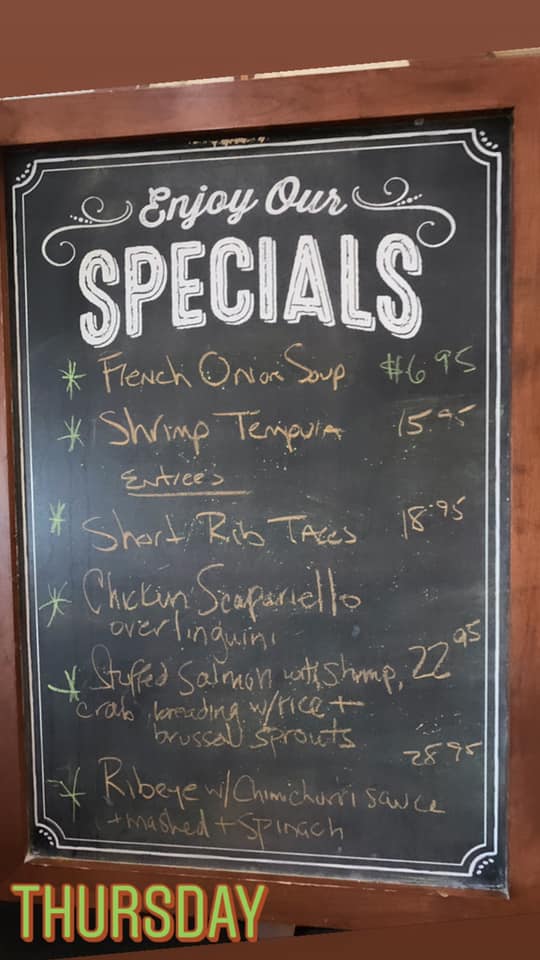 Enjoy Our
SPECIALS
French Onion Soup $6.95
Shrimp Tempura 15.95
Entrees
Short Rib Tacos 18.95
Chicken Scapariello
over linguini
22.95
Stuffed Salmon with Shrimp,
crab, breading w/rice +
brussel sprouts
28.95
Ribeye w/ Chimichurri sauce
+ mashed + spinach
THURSDAY